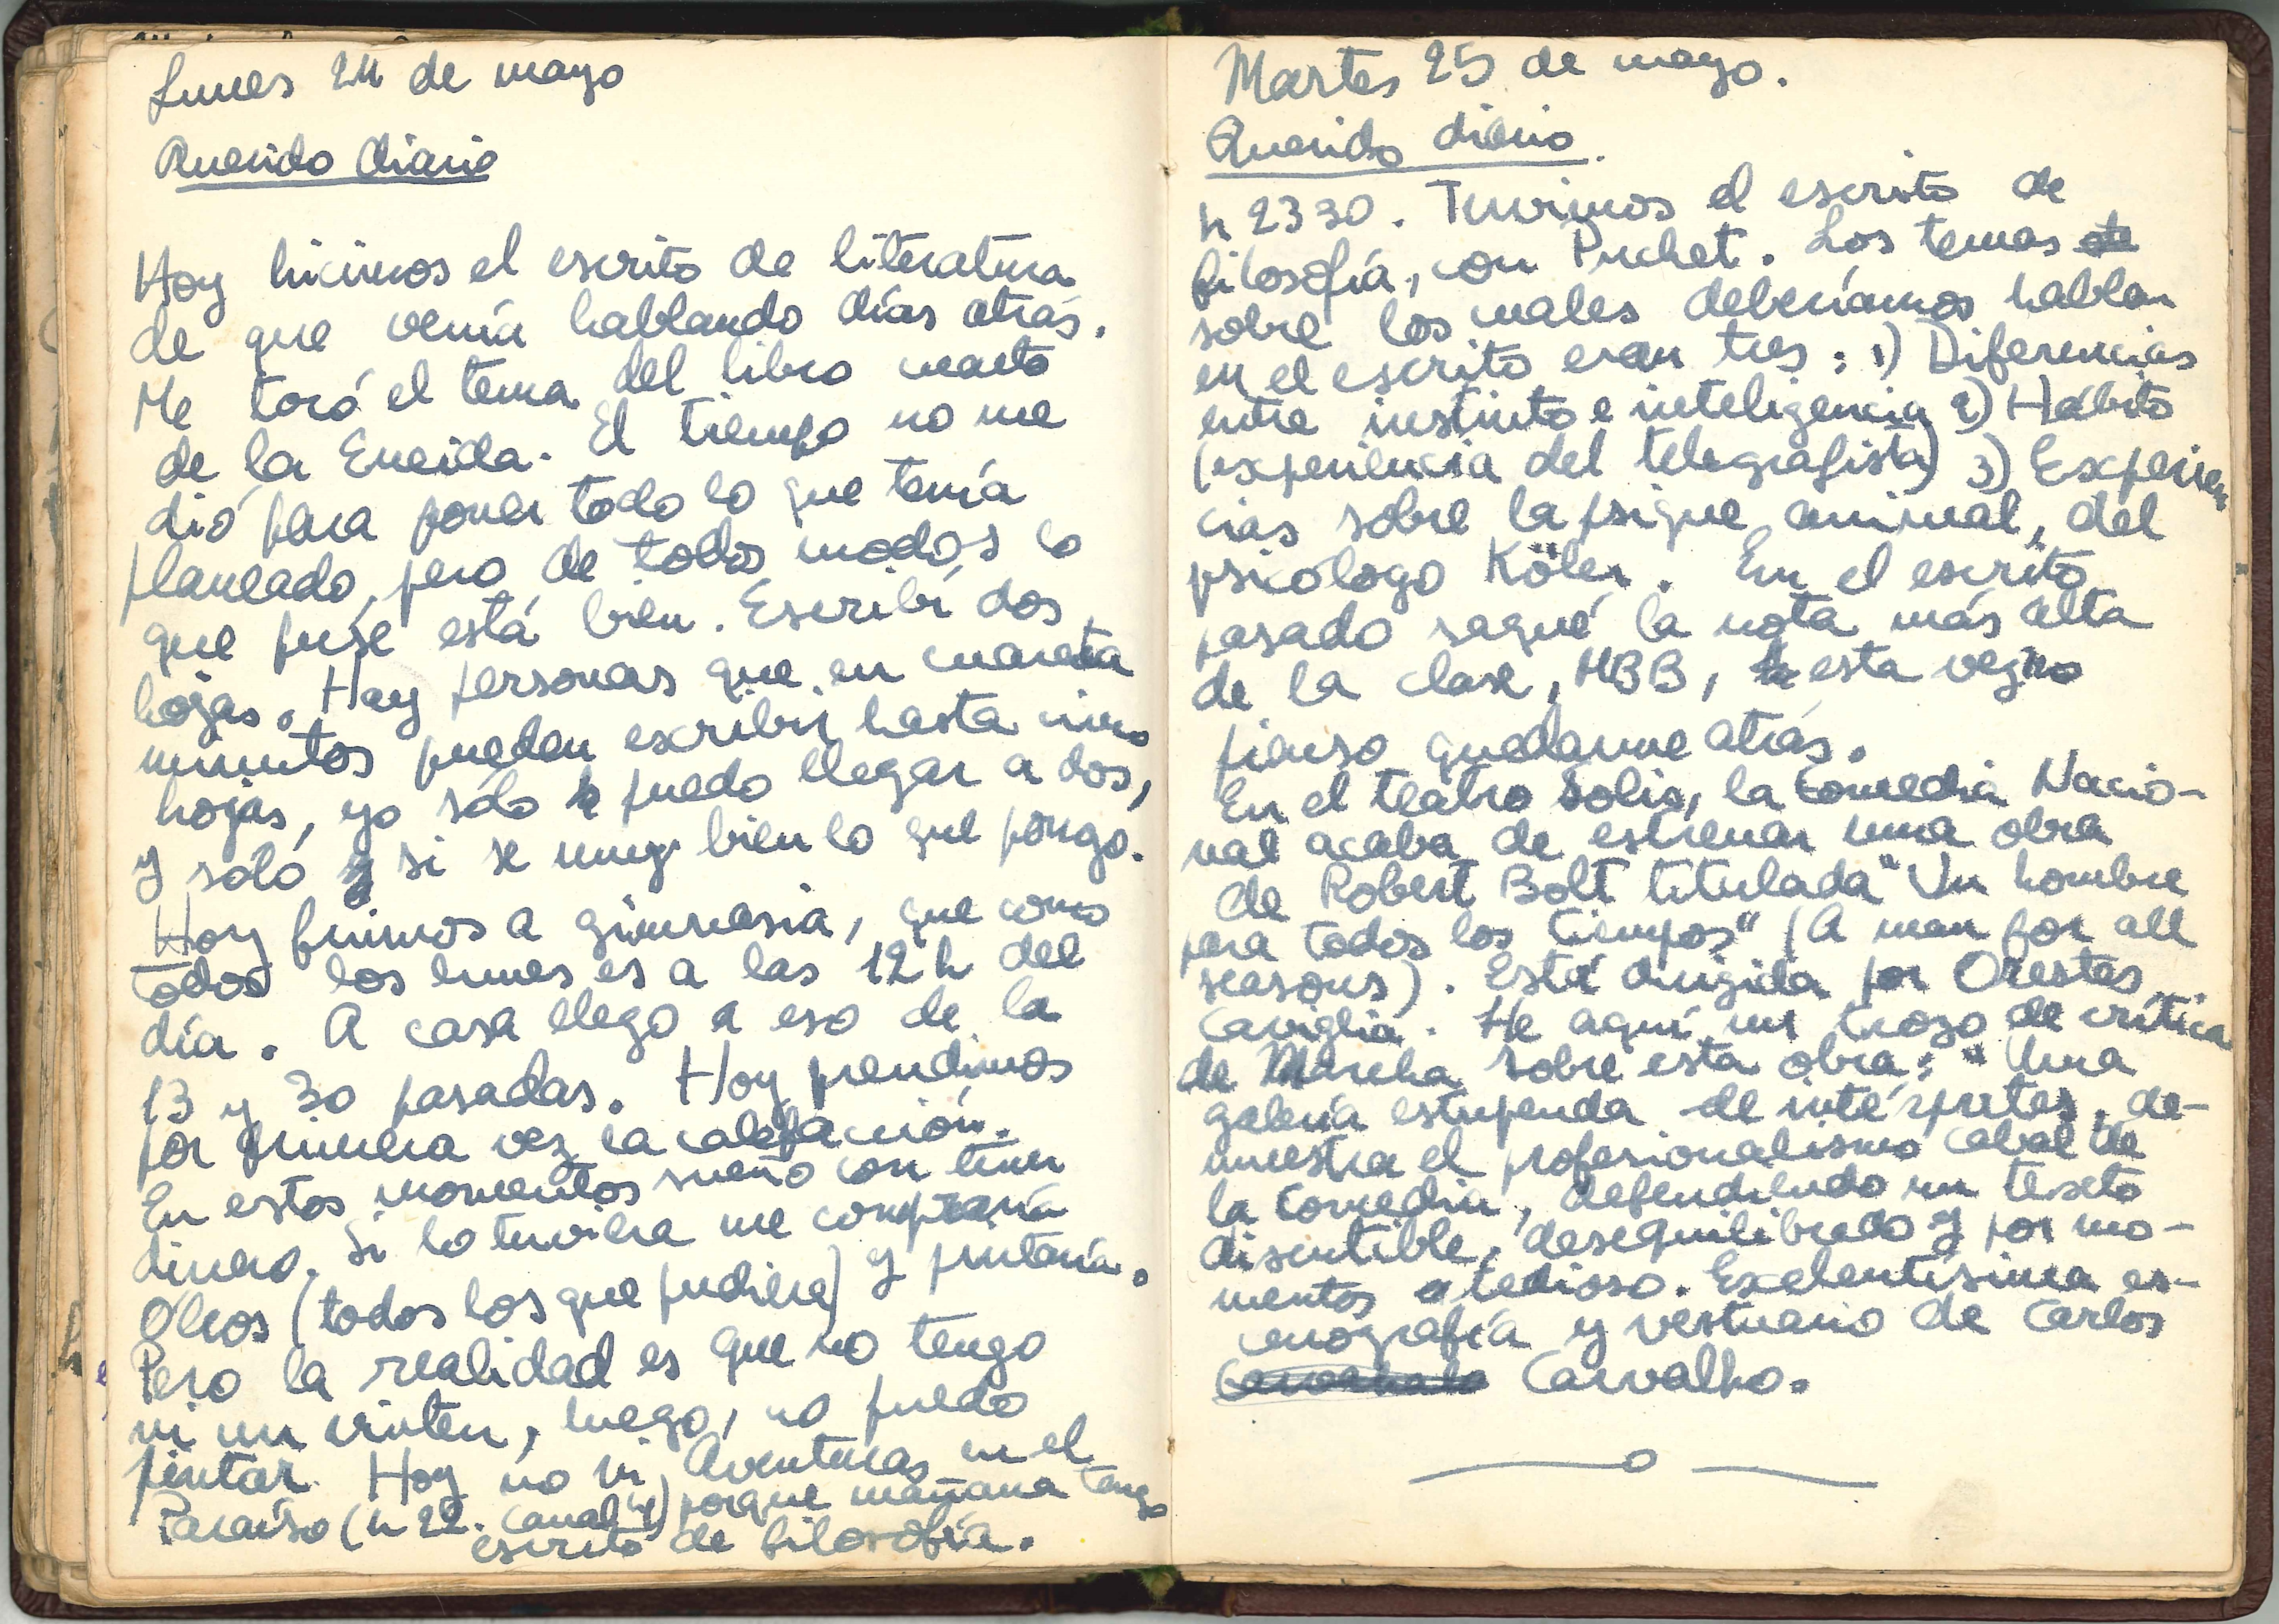 Lunes 24 de mayo
Querido diario
Hoy hicimos el escrito de literatura
de que venía hablando días atrás.
Me tocó el tema del libro cuarto
de la Eneida. El tiempo no me
dió para poner todo lo que tenía
planeado, pero de todos modos lo
que puse está bien. Escribí dos
hojas. Hay personas que en cuarenta
minutos pueden escribir hasta cinco
hojas, yo sólo puedo llegar a dos,
y sólo si se muy bien lo que pongo.
Hoy fuimos a gimnasia, que como
todos los lunes es a las 12 h del
día. A casa llego a eso de la
13 y 30 pasadas. Hoy prendimos
por primera vez la calefacción.
En estos momentos sueño con tener
dinero. Si lo tuviera me compraría
Oleos (todos los que pudiera) y pintaría.
Pero la realidad es que no tengo
ni un vinten, luego, no puedo
pintar. Hoy no vi Aventuras en el
Paraíso (h 22. canal 4) porque mañana tengo
escrito de filosofía.
Martes 25 de mayo.
Querido diario.
h 2330. Tuvimos el escrito de
filosofía, con Puchet. Los temas
sobre los cuales deberíamos hablar
en el escrito eran tres: 1) Diferencias
entre instinto e inteligencia 2) Hábito
(experiencia del telegrafista) 3) Experien
cias sobre la psique animal, del
psicólogo Köler. En el escrito
pasado saqué la nota más alta
de la clase, MBB, esta vez no
pienso quedarme atrás.
En el teatro Solis, la Comedia Nacio-
nal acaba de estrenar una obra
de Robert Bolt titulada "Un hombre
para todos los tiempos" (A man for all
seasons). Está dirigida por Orestes
Caviglia. He aquí un trozo de crítica
de Marcha sobre esta obra: "Una
galería estupenda de intérpretes, de-
muestra el profesionalismo cabal de
la Comedia, defendiendo un texto
discutible, desequilibrado y por mo-
mentos tedioso. Exelentísima es-
cenografía y vestuario de Carlos
Carvalho.